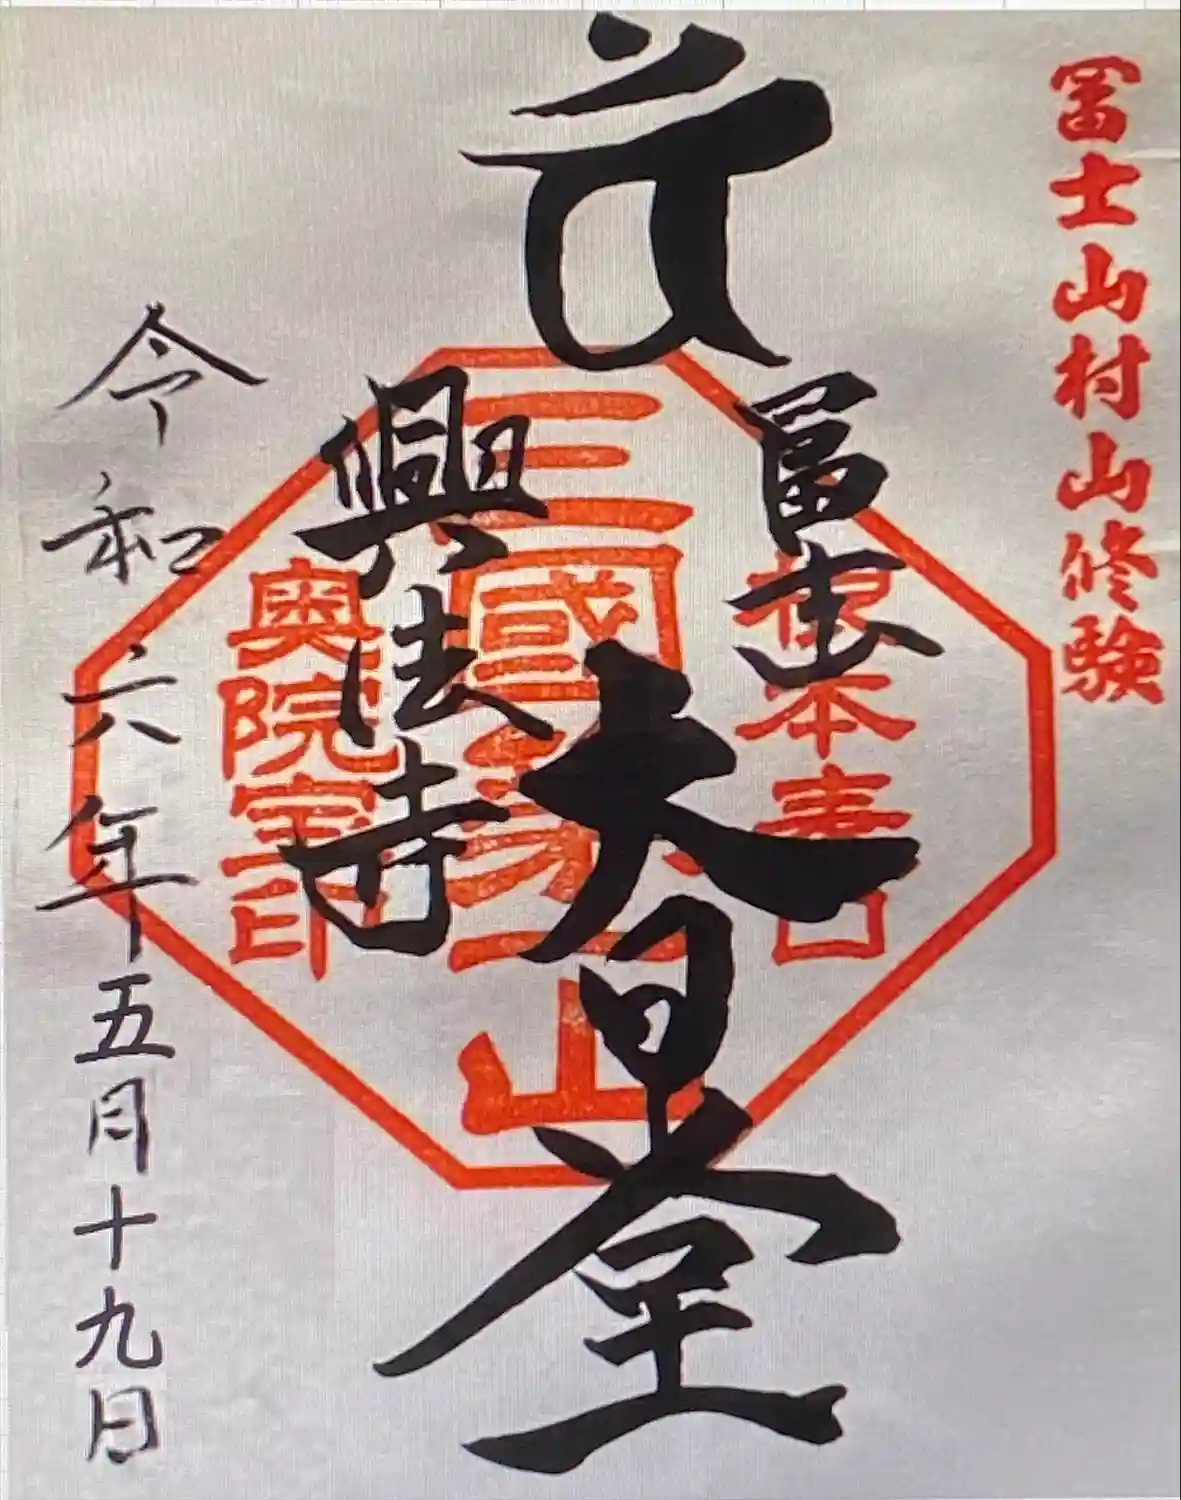 冨士山村山修験
冨士山
大日堂
興法寺
根本表口
三國第一山
奥院室印
令和六年五月十九日